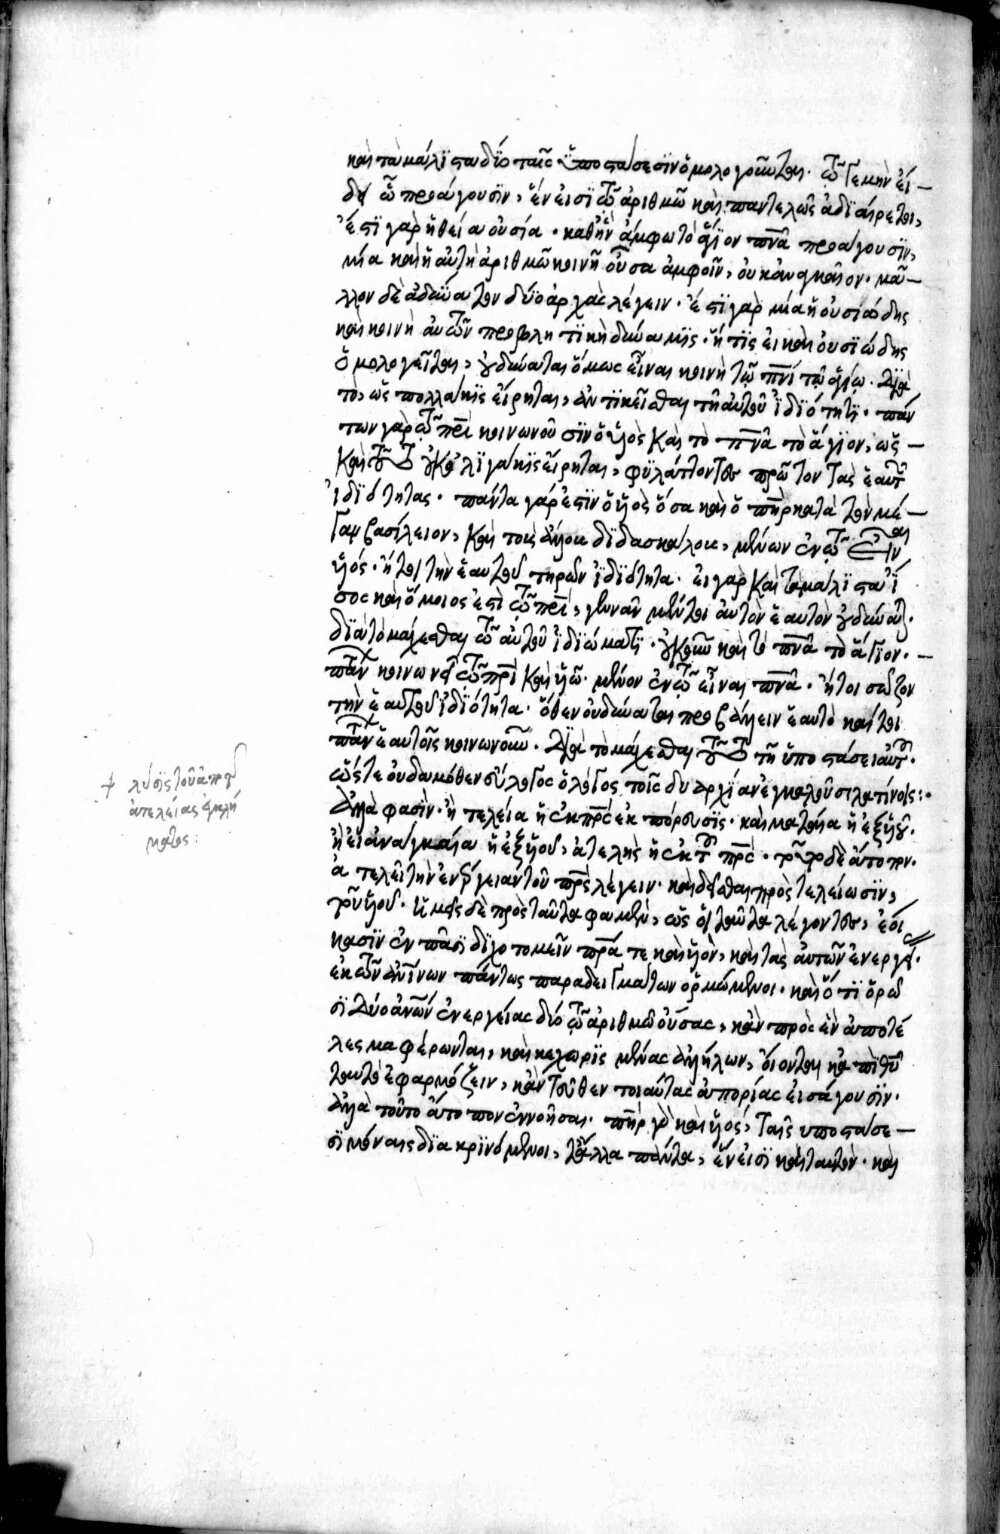 καὶ τὰ μάλιστα δύο ταῖς ὑποστάσεσιν ὁμολογοῦνται. τῷ γε μὴν εἴ-
δει ᾧ προάγουσιν, ἕν εἰσι τῷ ἀριθμῷ καὶ παντελῶς ἀδιαίρετοι,
ἔστι γὰρ ἡ θεία οὐσία. καθ' ἣν ἄμφω τὸ ἅγιον πνα προάγουσιν,
μία καὶ ἡ αὐτὴ ἀριθμῷ κοινὴ οὖσα ἀμφοῖν, οὐκ ἀναγκαῖον. μᾶ-
λλον δὲ ἀδύνατον δύο ἀρχὰς λέγειν. ἔστι γὰρ μία ἡ οὐσιώδης
καὶ κοινὴ αὐτῶν προβλητικὴ δύναμις. ἥτις εἰ καὶ οὐσιώδης
ὁμολογεῖται, οὐ δύναται ὅμως εἶναι κοινὴ τῷ πνι τῷ ἁγίῳ. διὰ
τὸ, ὡς πολλάκις εἴρηται, ἀντικεῖσθαι τῇ αὐτοῦ ἰδιότητι. πάν
των γὰρ τῷ πρι κοινωνοῦσιν ὁ υἱὸς καὶ τὸ πνα τὸ ἅγιον, ὡς
καὶ τοῦτο οὐκ ὀλιγάκις εἴρηται, φυλάττοντα πρῶτον τὰς ἑαυτ
ἰδιότητας. πάντα γάρ ἐστιν ὁ υἱὸς ὅσα καὶ ὁ πηρ κατὰ τὸν μέ-
γαν βασίλειον, καὶ τοὺς ἄλλους διδασκάλους, μένων ἐν τῷ εἶναι
υἱός. ἤτοι τὴν ἑαυτοῦ τηρῶν ἰδιότητα. εἰ γὰρ καὶ τὰ μάλιστα ἴ
σος καὶ ὅμοιος ἐστὶ τῷ πρι, γεννᾶν μέντοι αὐτὸν ἑαυτὸν οὐ δύναται.
διὰ τὸ μάχεσθαι τῷ αὐτοῦ ἰδιώματι. οὐκοῦν καὶ τὸ πνα τὸ ἅγιον.
πάντων κοινωνεῖ τῷ πρι καὶ υἱῷ. μένον ἐν τῷ εἶναι πνα. ἤτοι σῶζον
τὴν ἑαυτοῦ ἰδιότητα. ὅθεν οὐ δύναται προβάλλειν ἑαυτὸ καίτοι
πάντων ἑαυτοῖς κοινωνοῦν. διὰ τὸ μάχεσθαι τοῦτο τῇ ὑποστάσει αὐτοῦ.
ὥστε οὐδαμόθεν εὔλογος ὁ λόγος τοῖς δυαρχίαν ἐγκαλοῦσι λατίνοις:
ἀλλὰ φασὶν. ἢ τελεία ἡ ἐκ πρς ἐκπόρευσις. καὶ ματαία ἡ ἐξ υἱοῦ.
ἢ εἰ ἀναγκαία ἡ ἐξ υἱοῦ, ἀτελὴς ἡ ἐκ τοῦ πρς. τοῦτο δὲ ἄτοπον.
ἀτελῆ τὴν ἐνέργειαν τοῦ πρς λέγειν. καὶ δεῖσθαι πρὸς τελείωσιν,
τοῦ υἱοῦ. ἡμεῖς δὲ πρὸς ταῦτα φαμὲν, ὡς οἱ ταῦτα λέγοντες, ἐοί
κασιν ἐν πᾶσι διχοτομεῖν πρα τε καὶ υἱὸν, καὶ τὰς αὐτῶν ἐνεργεί.
ἐκ τῶν ἀνίνων πάντως παραδειγμάτων ὁρμώμενοι. καὶ ὅτι ὁρῶ
σι δύο ἀνῶν ἐνεργείας δύο τῷ ἀριθμῷ οὔσας, κἂν πρὸς ἓν ἀποτέ
λεσμα φέρωνται, καὶ κεχωρισμένας ἀλλήλων, οἴονται
τοῦτο ἐφαρμόζειν, κἀντεῦθεν τοιαύτας ἀπορίας εἰσάγουσιν.
ἀλλὰ τοῦτο ἄτοπον ἐννοῆσαι. πηρ γὰρ καὶ υἱός, ταῖς υποστάσε-
σι μόναις διακρινόμενοι, τὰ ἄλλα πάντα, ἕν εἰσι καὶ ταυτόν. καὶ
+ λύσις τοῦ ἀπὸ τ
ἀτελείας ἐγκλή
ματος: